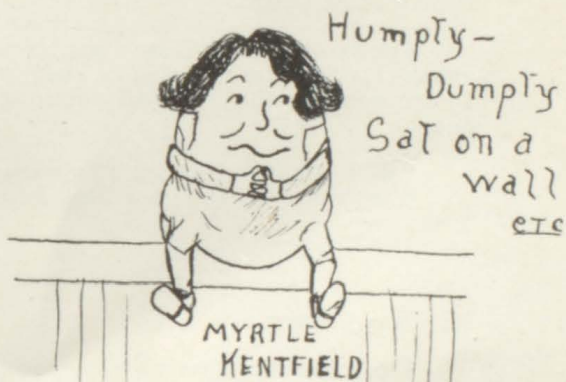 Humpty-
Dumpty
Sat on a
wall
etc
MYRTLE
KENTFIELD